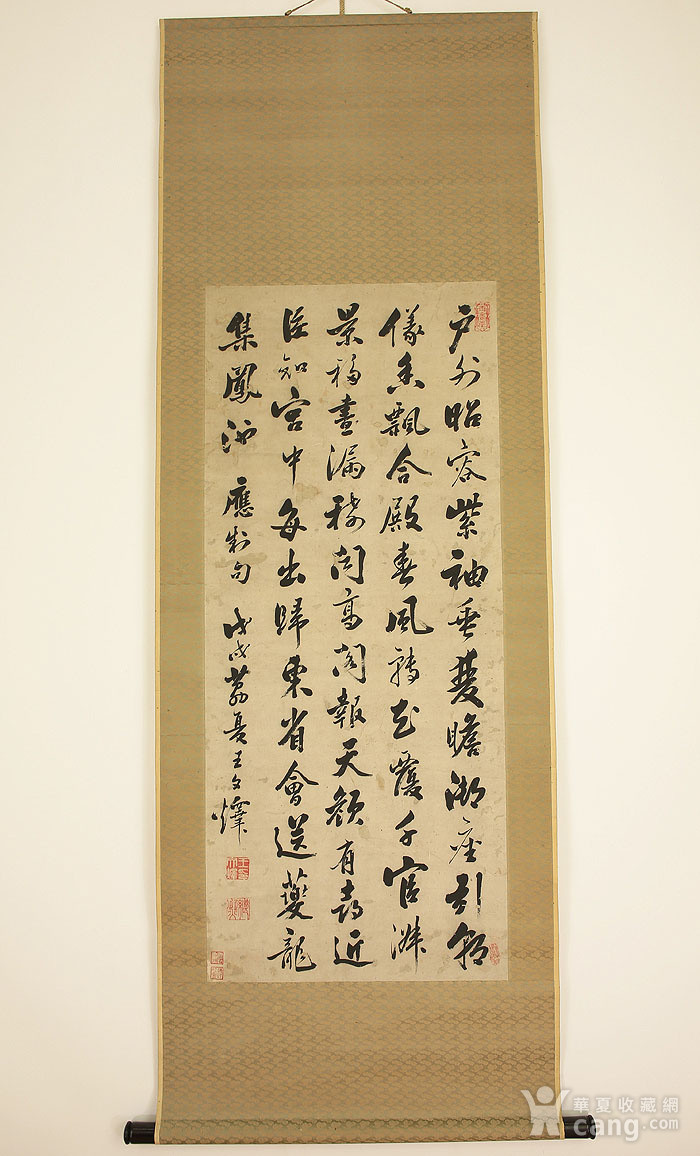 戶外昭容紫袖垂雙瞻御座引朝
儀香飄合殿春風轉花覆千官淑
景移晝漏稀聞高閣報天顏有喜近
臣知宮中每出歸東省會送夔龍
集鳳池 應制句 戊戌荔夏王文
華夏收藏網
cang.com